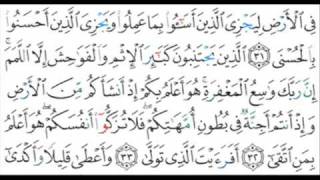 فِي ٱلْأَرْضِ لِيَجْزِيَ ٱلَّذِينَ أَسَٰٓـُٔوا۟ بِمَا عَمِلُوا۟ وَيَجْزِيَ ٱلَّذِينَ أَحْسَنُوا۟
بِٱلْحُسْنَى ٣١ ٱلَّذِينَ يَجْتَنِبُونَ كَبَٰٓئِرَ ٱلْإِثْمِ وَٱلْفَوَٰحِشَ إِلَّا ٱللَّمَمَ
إِنَّ رَبَّكَ وَٰسِعُ ٱلْمَغْفِرَةِ هُوَ أَعْلَمُ بِكُمْ إِذْ أَنشَأَكُم مِّنَ ٱلْأَرْضِ
وَإِذْ أَنتُمْ أَجِنَّةٌ فِي بُطُونِ أُمَّهَٰتِكُمْ فَلَا تُزَكُّوٓا۟ أَنفُسَكُمْ هُوَ أَعْلَمُ
بِمَنِ ٱتَّقَىٰٓ ٣٢ أَفَرَءَيْتَ ٱلَّذِي تَوَلَّىٰ ٣٣ وَأَعْطَىٰ قَلِيلًا وَأَكْدَىٰٓ